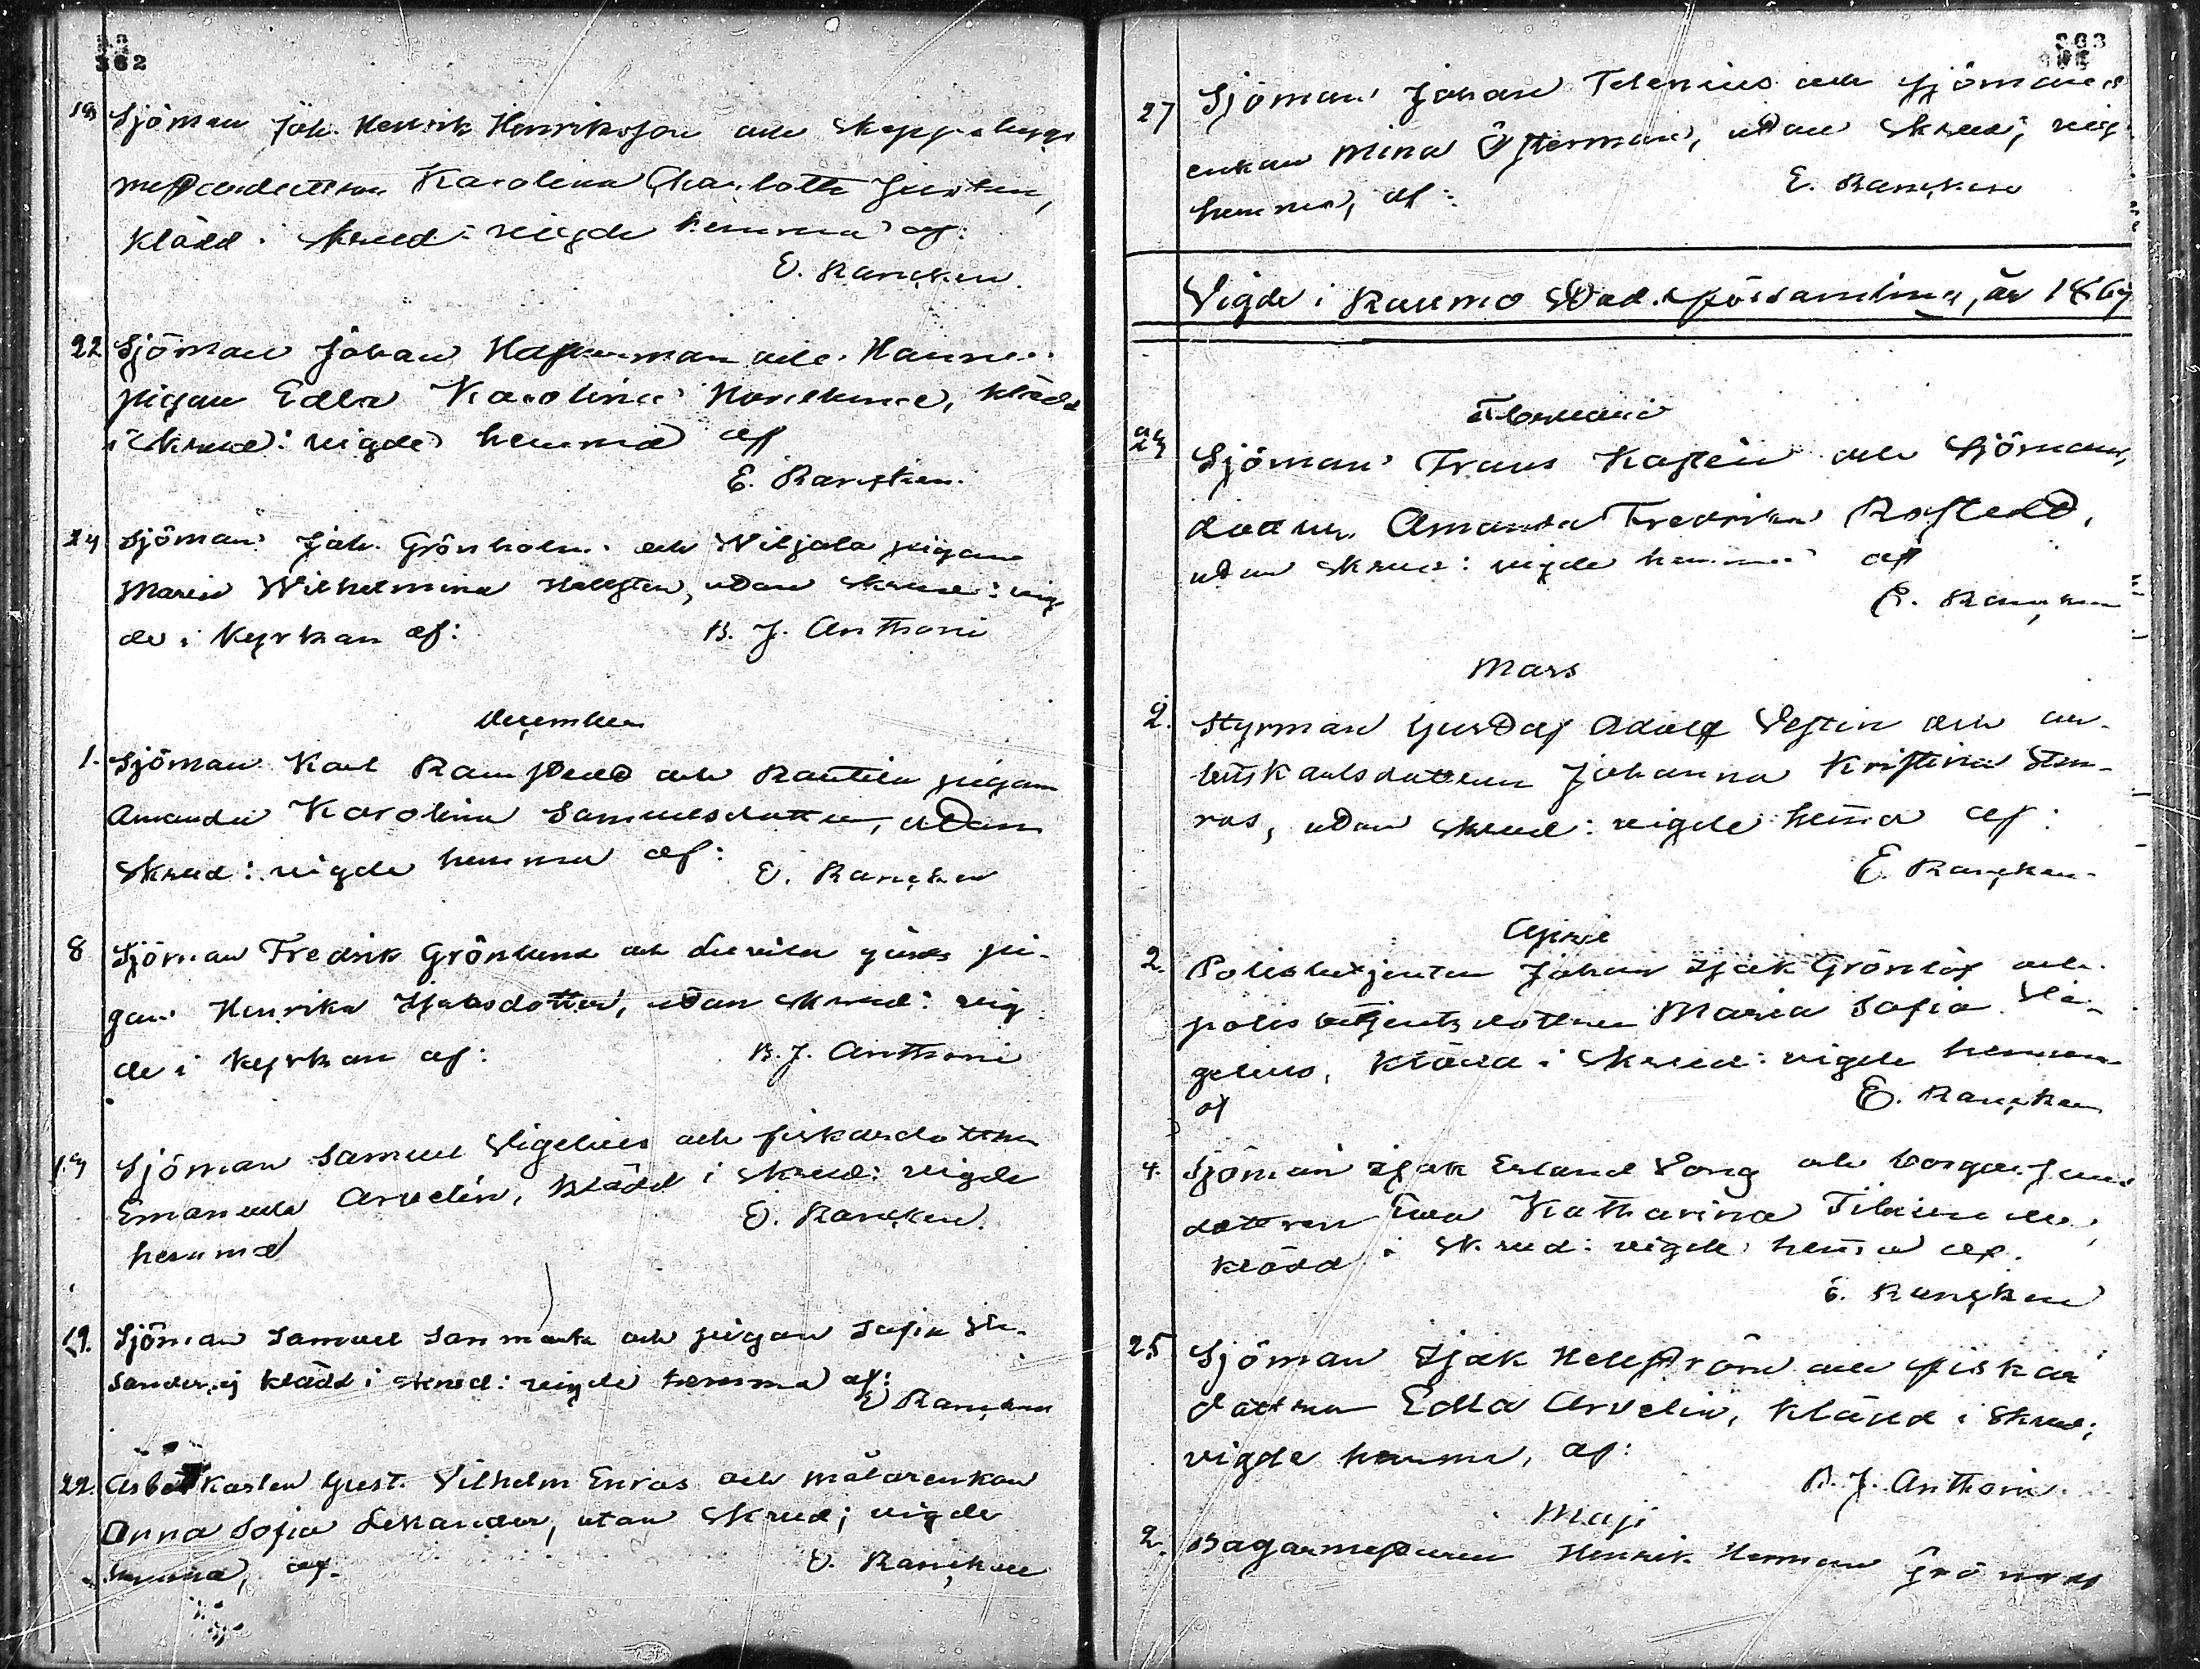 362
19 Sjöman Joh. Henrik Henriksson och Skeppsbygg
mestaredottren Karolina Charlotta
klädd i skrud: vigde hemma af:
E. Rancken.
22 Sjöman Johan och
pigan Edla Karolina klädd
i skrud: vigde hemma af
E. Rancken.
24 Sjöman Joh. Grönholm och Viljala pigan
Maria Wilhelmina Hellsten, utan skrud: vig
de i Kyrkan af: B. J. Anthoni
December
1. Sjöman Karl Ramstedt och Rantila pigan
Amanda Karolina Samuelsdotter, utan
skrud: vigde hemma af: E. Rancken
8 Sjöman Fredrik Grönlund och gårds pi-
gan Henrika Isaksdotter, utan skrud: vig
de i Kyrkan af: B. J. Anthoni
Sjöman Samuel Vigelius och fiskardottren
Emanuela Arvelin, klädd i skrud: vigde
hemma E. Rancken.
19. Sjöman Samuel Sanmark och pigan Sofia
sander, ej klädd i skrud: vigde hemma af:
E Rancken
22. Arbetskarlen Gust. Vilhelm Enros och målarenkan
Anna Sofia Lekander, utan skrud; vigde
hemma, af. E. Rancken
363
27 Sjöman Johan Telenius och sjömans
enkan Mina Österman, utan skrud; vig
hemma, af: E. Rancken
Vigde i Raumo Stads församling, år 1867
Februari
24 Sjöman Frans Kastén och Sjömans
dottren Amanda Fredrika Rostedt,
utan skrud: vigde hemma af
E. Rancken
Mars
2. Styrman Gustaf Adolf Vestin och ar-
betskarlsdottren Johanna Kristina Sten-
ros, utan skrud: vigde hemma af:
E. Rancken.
April
2. Polisbetjenten Johan Isak Grönlöf och
polisbetjentsdottren Maria Sofia Vi-
gelius, klädd i skrud: vigde hemma
af E. Rancken
4. Sjöman Isak Erland Long och borgare
dottren Eva Katharina
klädd i skrud: vigde hemma af.
E. Rancken
25 Sjöman Isak Hellström och fiskar
dottren Edla Arvelin, klädd i skrud;
vigde hemma, af:
B. J. Anthoni.
Maji
2. Bagarmestaren Henrik Herman